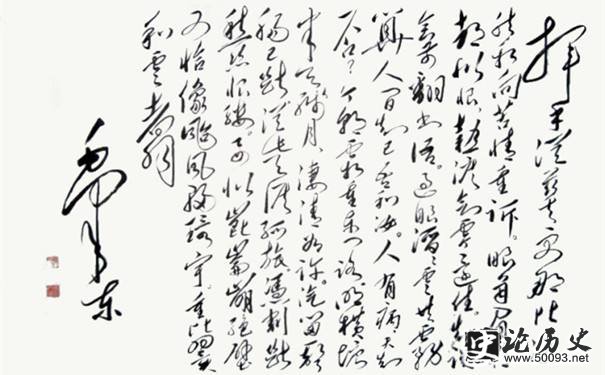 挥手从兹去更那堪凄
然相向苦情重诉。眼角眉梢
都似恨,热泪欲零还住。知误
会前翻书语。过眼滔滔云共雾
算人间知己吾和汝。人有病天知
否?今朝霜重东门路照横塘
半天残月,凄清如许。汽笛一声
肠已断从此天涯孤旅。凭割断
愁丝恨缕。要似崑崙崩绝壁
又恰像颱风扫寰宇。重比翼
和云翥
毛泽东
论历史
www.50093.net